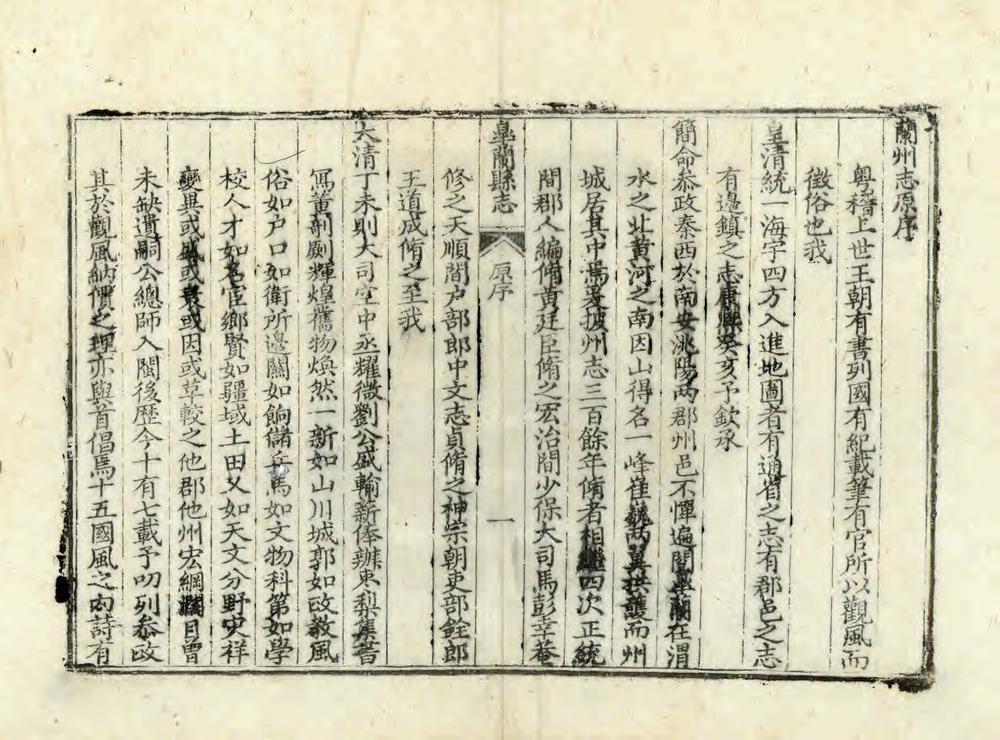 蘭州志原序
粤稽上世王朝有書列國有紀載筆有官所以觀風而
徵俗也我
皇清統一海宇四方入進地圖者有通省之志有郡邑之志
有邊鎮之志康熙癸亥予欽承
簡命叅政秦西於南安洮陽两郡州邑不憚遍閱臯蘭在渭
水之北黄河之南因山得名一峰崔巍两翼拱護而州
城居其中焉爰披州志三百餘年脩者相繼四次正統
間郡人編脩黄廷臣脩之宏治間少保大司馬彭幸菴
臯蘭縣志
原序
一
修之天順間戸部郎中文志貞脩之神宗朝吏部銓郎
王道成脩之至我
大清丁未則大司空中丞耀薇劉公盛輸薪俸辦東梨集書
冩董剞劂輝煌舊物煥然一新如山川城郭如政教風
俗如戸口如衛所邊關如餉儲兵馬如文物科第如學
校人才如名宦鄉賢如疆域土田又如天文分野灾祥
變異或盛或衰或因或革較之他郡他州宏綱濶目曾
未缺遺嗣公總師入閩後歷今十有七載予叨列叅政
其於觀風納價之理亦與首倡焉十五國風之内詩有